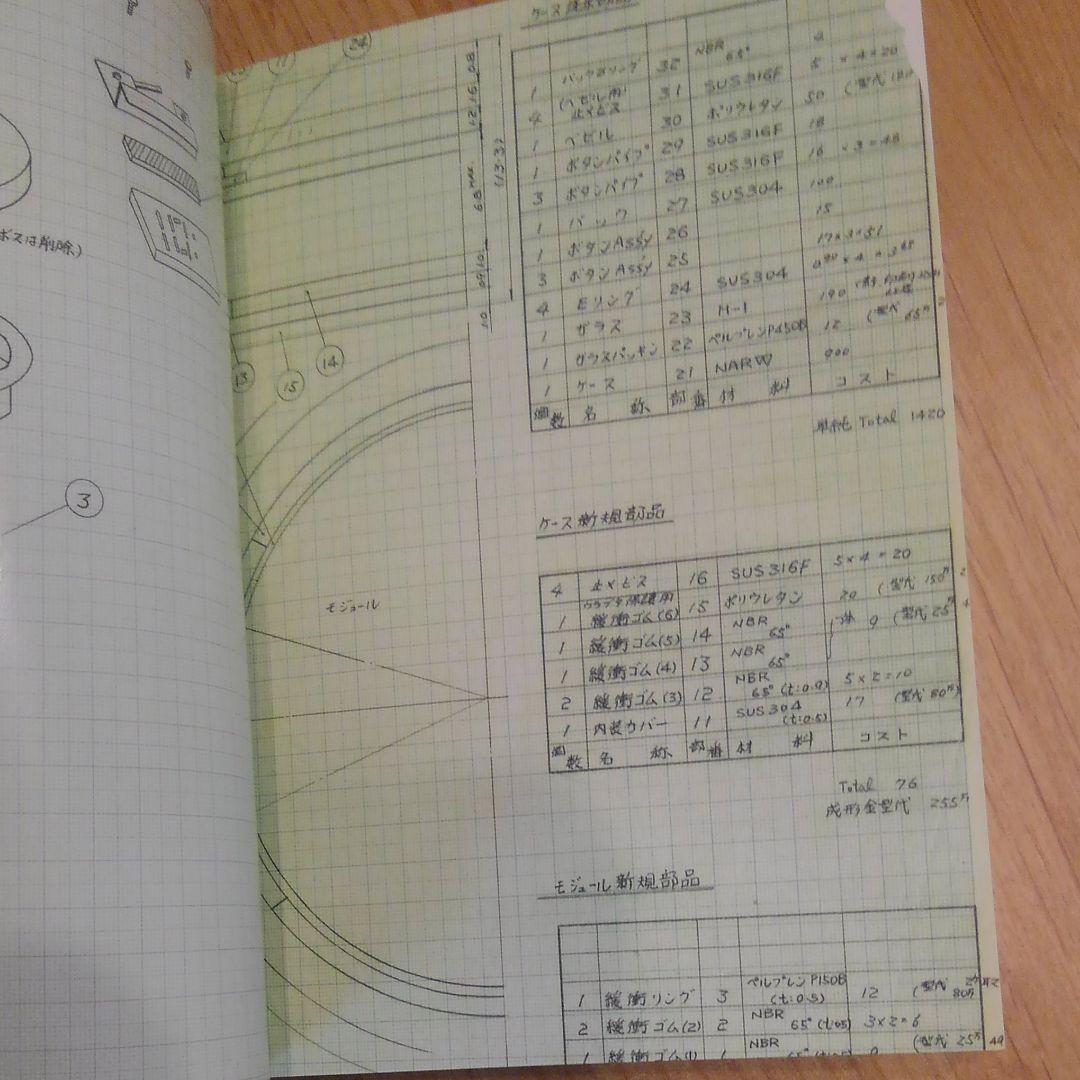 ボスは削除)
3
24
13
15
14
12.16
0.8
6.8 MAX.
(13.3)
10
モジュール
1 バックOリング 32 NBR 65°
4 (ベゼル用) 止メビス 31 SUS316F 5 × 4 = 20
1 ベゼル 30 ポリウレタン 50 (型代 180
1 ボタンパイプ 29 SUS316F 18
3 ボタンパイプ 28 SUS316F 16 × 3 = 48
1 バック 27 SUS304 100
1 ボタンAssy 26 15
3 ボタンAssy 25 17×3=51
4 Eリング 24 SUS304
1 ガラス 23 H-1 190
1 ガラスパッキン 22 ペルプレンP450B 12 (型代 65万
1 ケース 21 NARW 900
個数 名 称 部番 材 料 コスト
単純 Total 1420
ケース新規部品
4 止メビス 16 SUS316F 5×4=20
1 緩衝ゴム(6) 15 ポリウレタン 20 (型代 150万
1 緩衝ゴム(5) 14 NBR 65° 9 (型代 25万
1 緩衝ゴム(4) 13 NBR 65°
2 緩衝ゴム(3) 12 NBR 65° (t:0.9) 5×2=10
1 内装カバー 11 SUS304 (t:0.5) 17 (型代 80万)
個数 名 称 部番 材 料 コスト
Total 76
成形金型代 255万
モジュール新規部品
1 緩衝リング 3 ペルプレンP150B (t:0.5) 12 (型代 80万
2 緩衝ゴム(2) 2 NBR 65° (t:05) 3×2=6
1 緩衝ゴム(1) 1 NBR (型代 25万